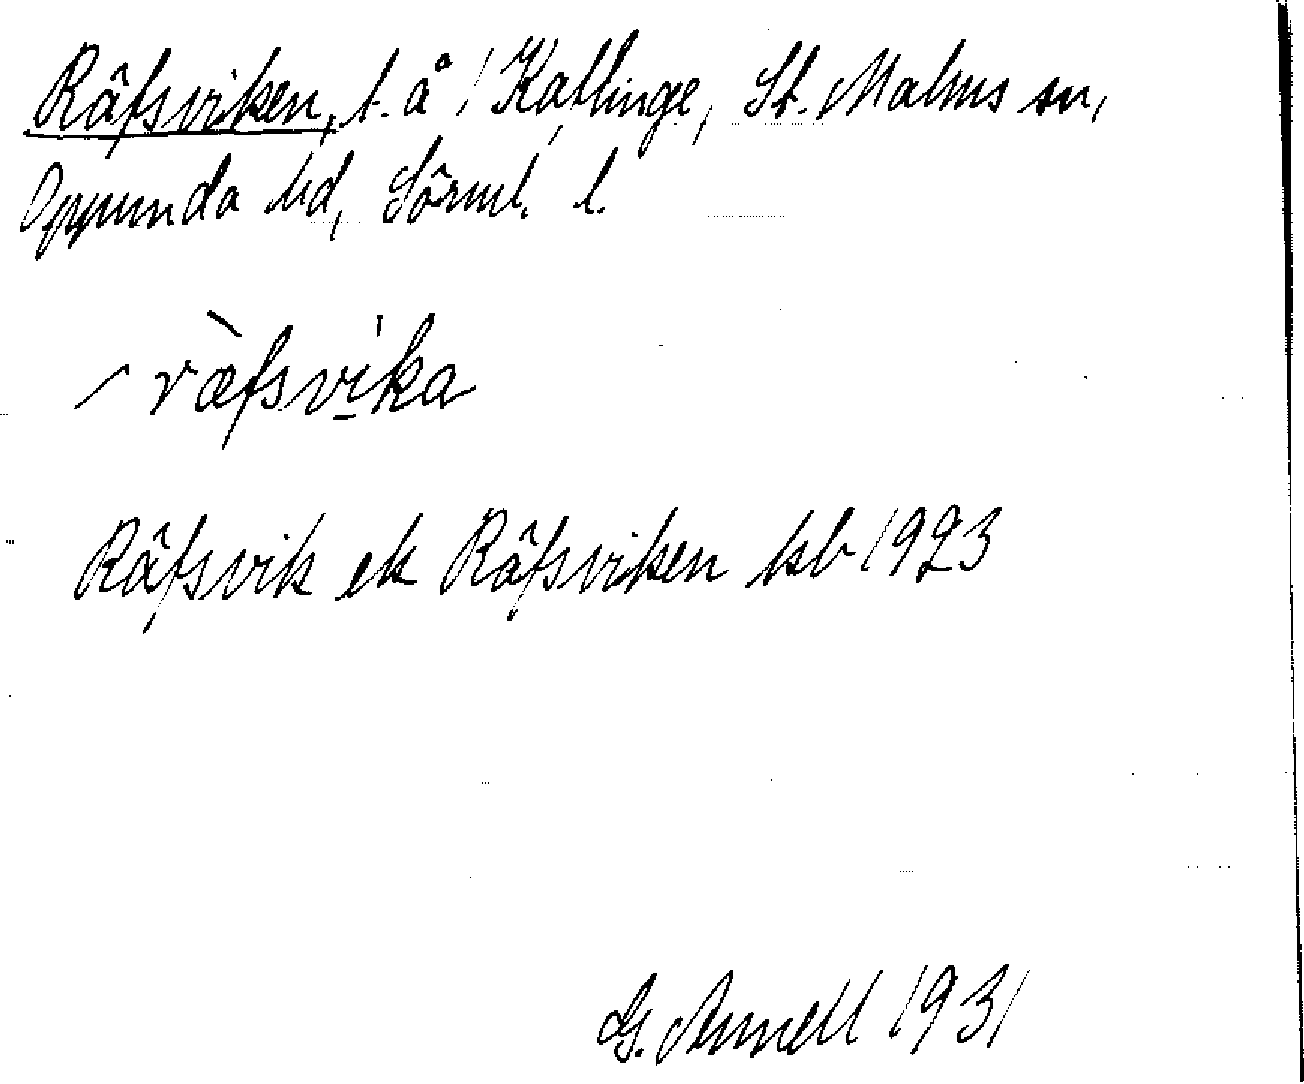 Räfsviken, t. å 1 Kattinge, St. Malms sn,
Oppunda hd, Sörml. l.
ræ̀fsvi̲ka
Räfsvik ek Räfsviken kb 1923
G. Annell 1931